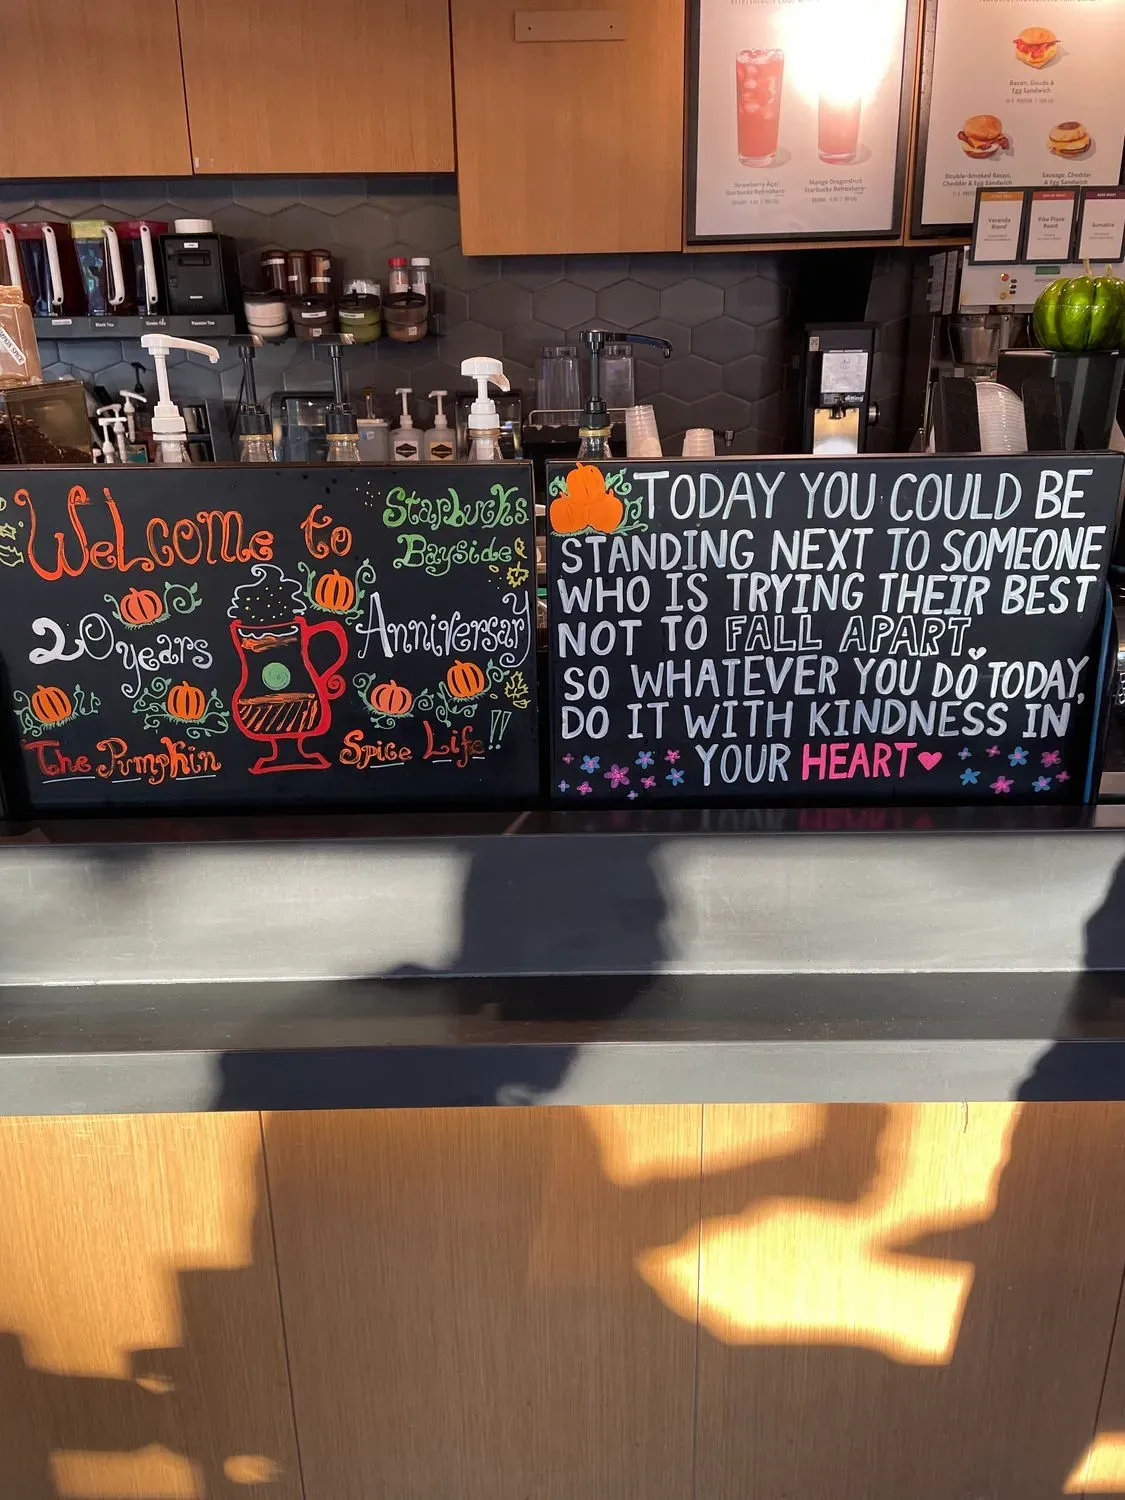 Strawberry Açaí
Starbucks Refreshers
Mango Dragonfruit
Starbucks Refreshers
Bacon, Gouda &
Egg Sandwich
Double-Smoked Bacon,
Cheddar & Egg Sandwich
Sausage, Cheddar
& Egg Sandwich
Veranda
Blend
Pike Place
Roast
Sumatra
Black Tea
Green Tea
Passion Tea
Welcome to
Starbucks
Bayside
20 years
Anniversary
The Pumpkin
Spice Life!!
TODAY YOU COULD BE
STANDING NEXT TO SOMEONE
WHO IS TRYING THEIR BEST
NOT TO FALL APART.
SO WHATEVER YOU DO TODAY,
DO IT WITH KINDNESS IN
YOUR HEART